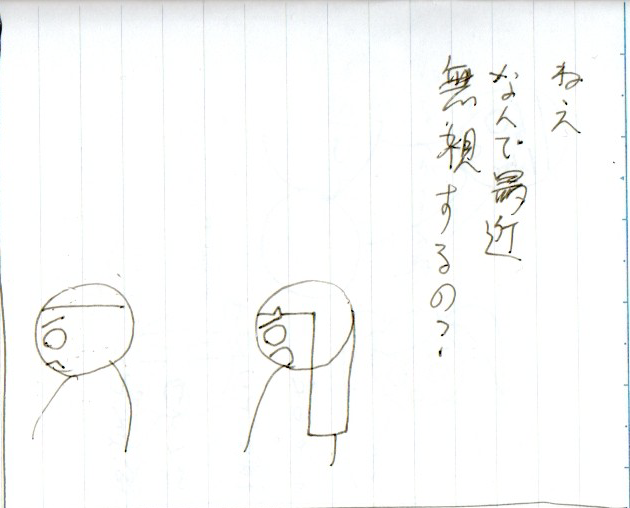 ねえ
なんで最近
無視するの?